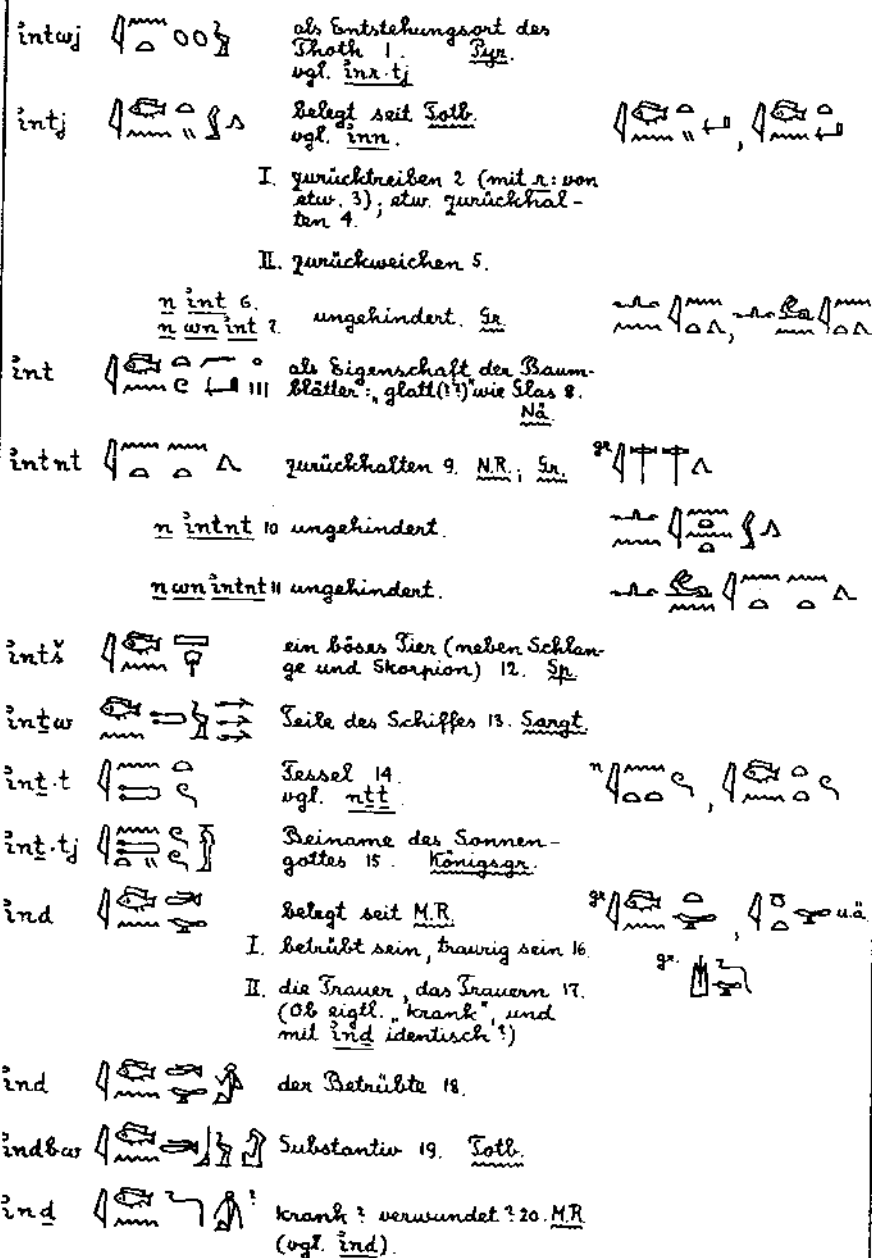 ı͗ntwj als Entstehungsort des
Thoth 1. Pyr.
vgl. ı͗nr·tj
ı͗ntj belegt seit Totb.
vgl. ı͗nn.
I. zurücktreiben 2 (mit r: von
etw. 3); etw. zurückhal-
ten 4.
II. zurückweichen 5.
n ı͗nt 6.
n wn ı͗nt 7. ungehindert. Gr.
ı͗nt als Eigenschaft der Baum-
blätter: „glatt(??)" wie Glas 8.
Nä.
ı͗ntnt zurückhalten 9. N.R.; Gr. gr.
n ı͗ntnt 10 ungehindert.
n wn ı͗ntnt 11 ungehindert.
ı͗ntš ein böses Tier (neben Schlan-
ge und Skorpion) 12. Sp.
ı͗nṯw Teile des Schiffes 13. Sargt.
ı͗nṯ·t Fessel 14. n
vgl. nṯṯ
ı͗nṯ·tj Beiname des Sonnen-
gottes 15. Königsgr.
ı͗nd belegt seit M.R. gr. , u.ä.
I. betrübt sein, traurig sein 16. gr.
II. die Trauer, das Trauern 17.
(Ob eigtl. „krank", und
mit ı͗nḏ identisch?)
ı͗nd der Betrübte 18.
ı͗ndbw Substantiv 19. Totb.
ı͗nḏ ? krank? verwundet? 20. M.R.
(vgl. ı͗nd).